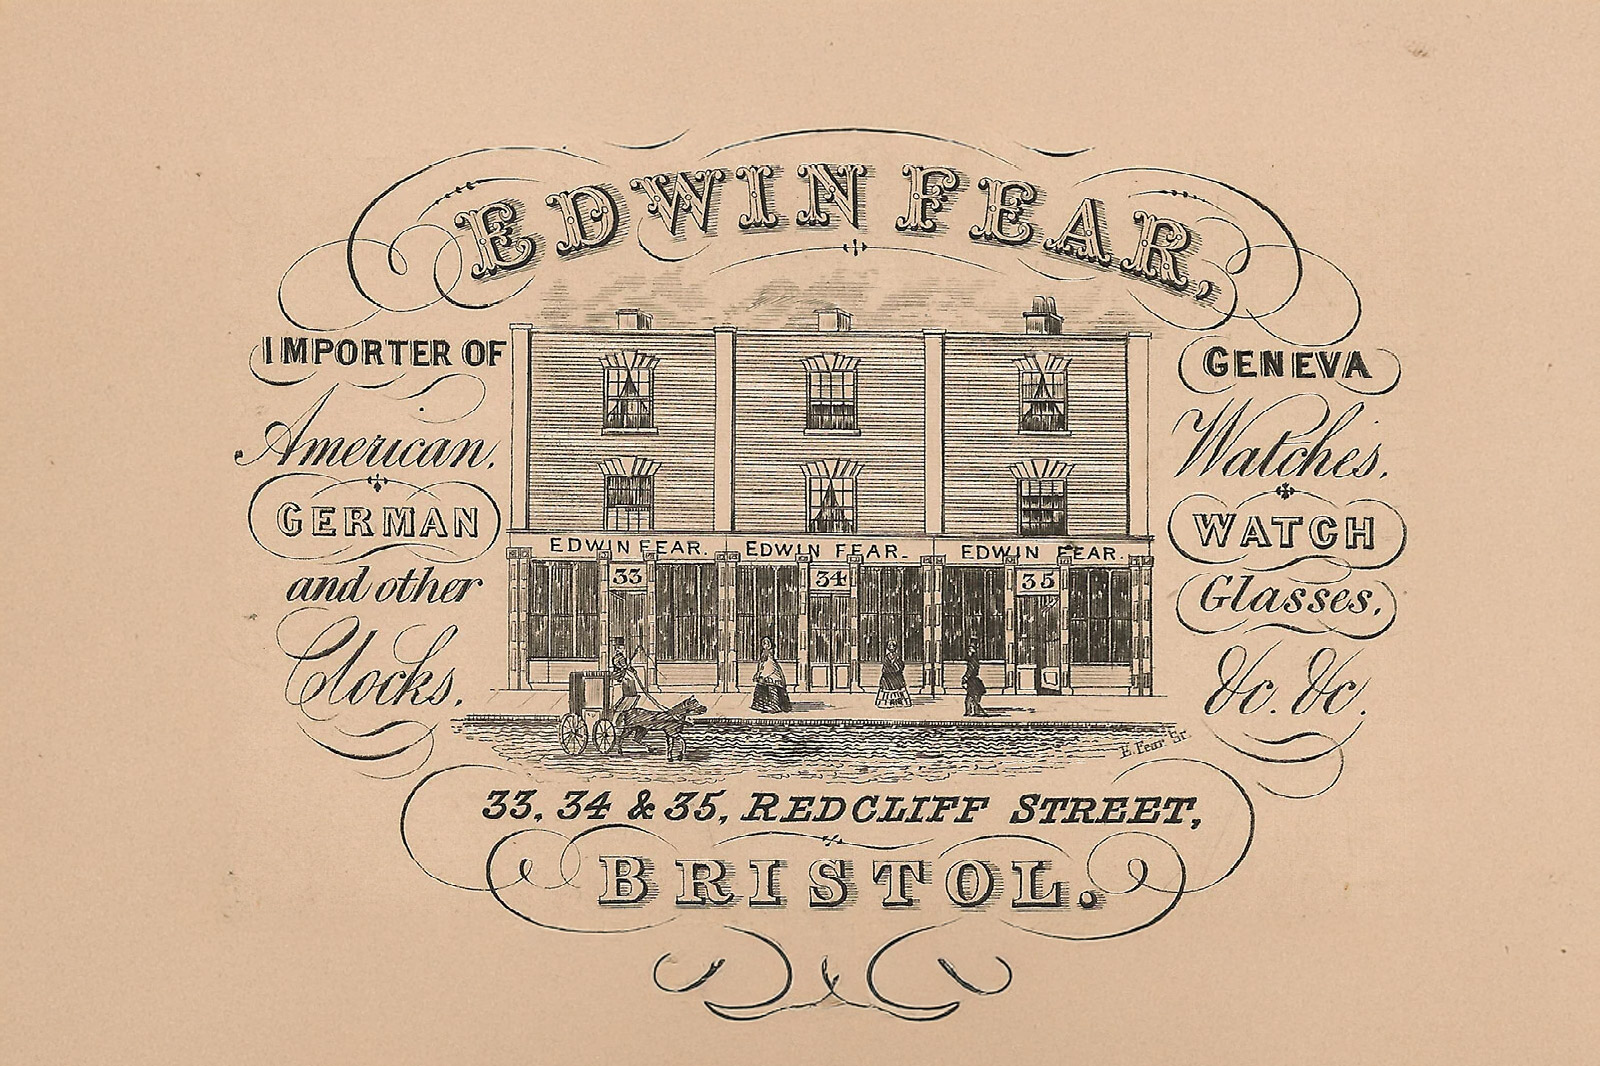 EDWIN FEAR,
IMPORTER OF
American,
GERMAN
and other
Clocks.
GENEVA
Watches,
WATCH
Glasses,
&c. &c.
EDWIN FEAR. EDWIN FEAR. EDWIN FEAR.
33 34 35
E. Fear Sc.
33, 34 & 35, REDCLIFF STREET,
BRISTOL.